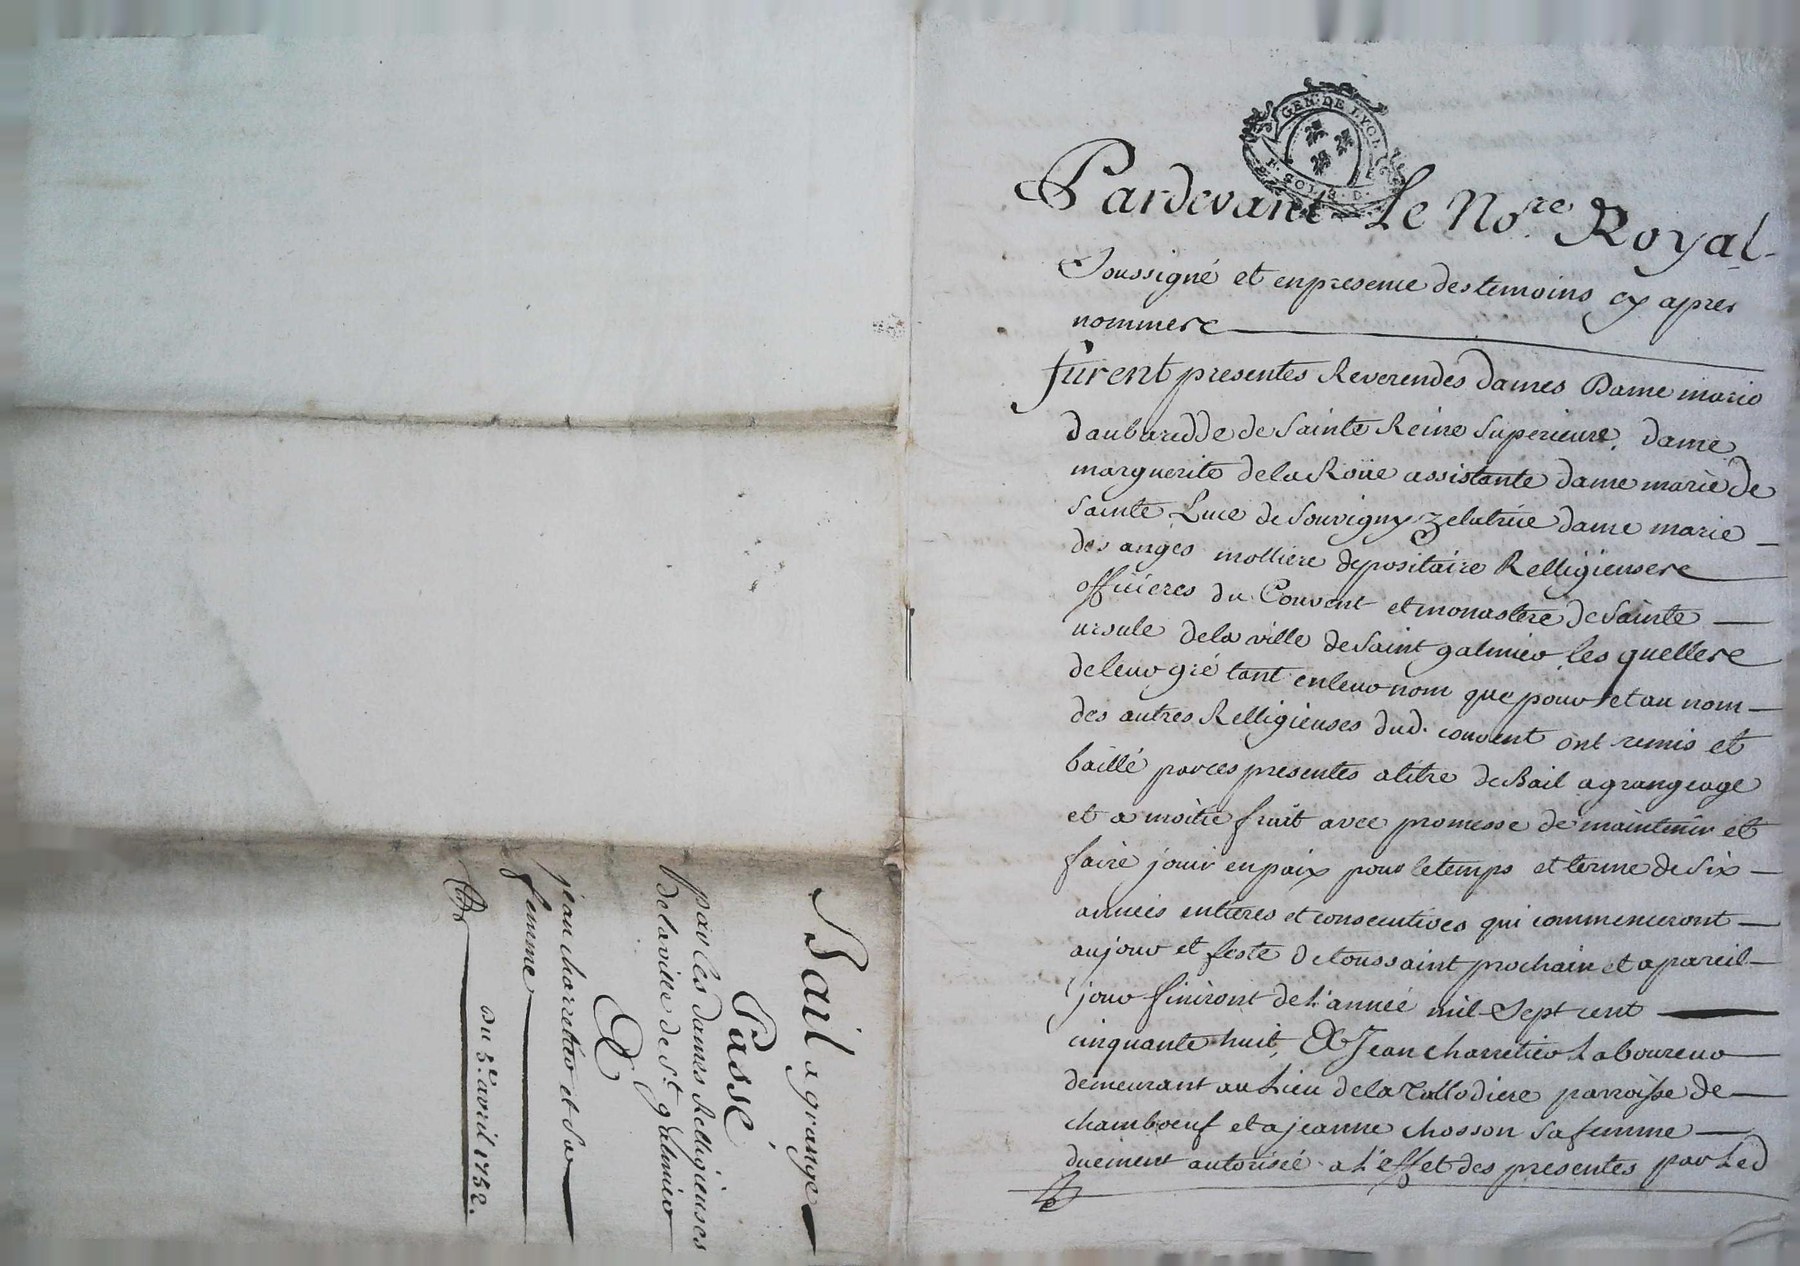 Bail a grange
Passé
par les dames Relligieuses
de la ville de St. galmier
A
jean charretier et sa
femme
du 5e. avril 1752.
GEN. DE LYON
Pardevant Le No.re Royal
Soussigné et en presence des temoins cy apres
nommes
furent presentes Reverendes dames Dame marie
daubaredde de Sainte Reine Superieure, dame
marguerite de la Roüe assistante dame marie de
Sainte Luce de Souvigny Zelatrice dame marie
des anges molliere depositaire Relligieuses
officieres du Couvent et monastere de Sainte
ursule de la ville de Saint galmier, les quelles
de leur gré tant en leur nom que pour et au nom
des autres Relligieuses dud. couvent ont remis et
baillé par ces presentes a titre de Bail a grangeage
et a moitie fruit avec promesse de maintenir et
faire jouir en paix pour le temps et terme de Six
années entieres et consecutives qui commenceront
au jour et feste de toussaint prochain et a pareil
jour finiront de l'année mil Sept cent
cinquante huit, A Jean charretier Laboureur
demeurant au Lieu de la parroisse de
chambœuf et a jeanne chosson sa femme
duement autorisée a L'effet des presentes par Led